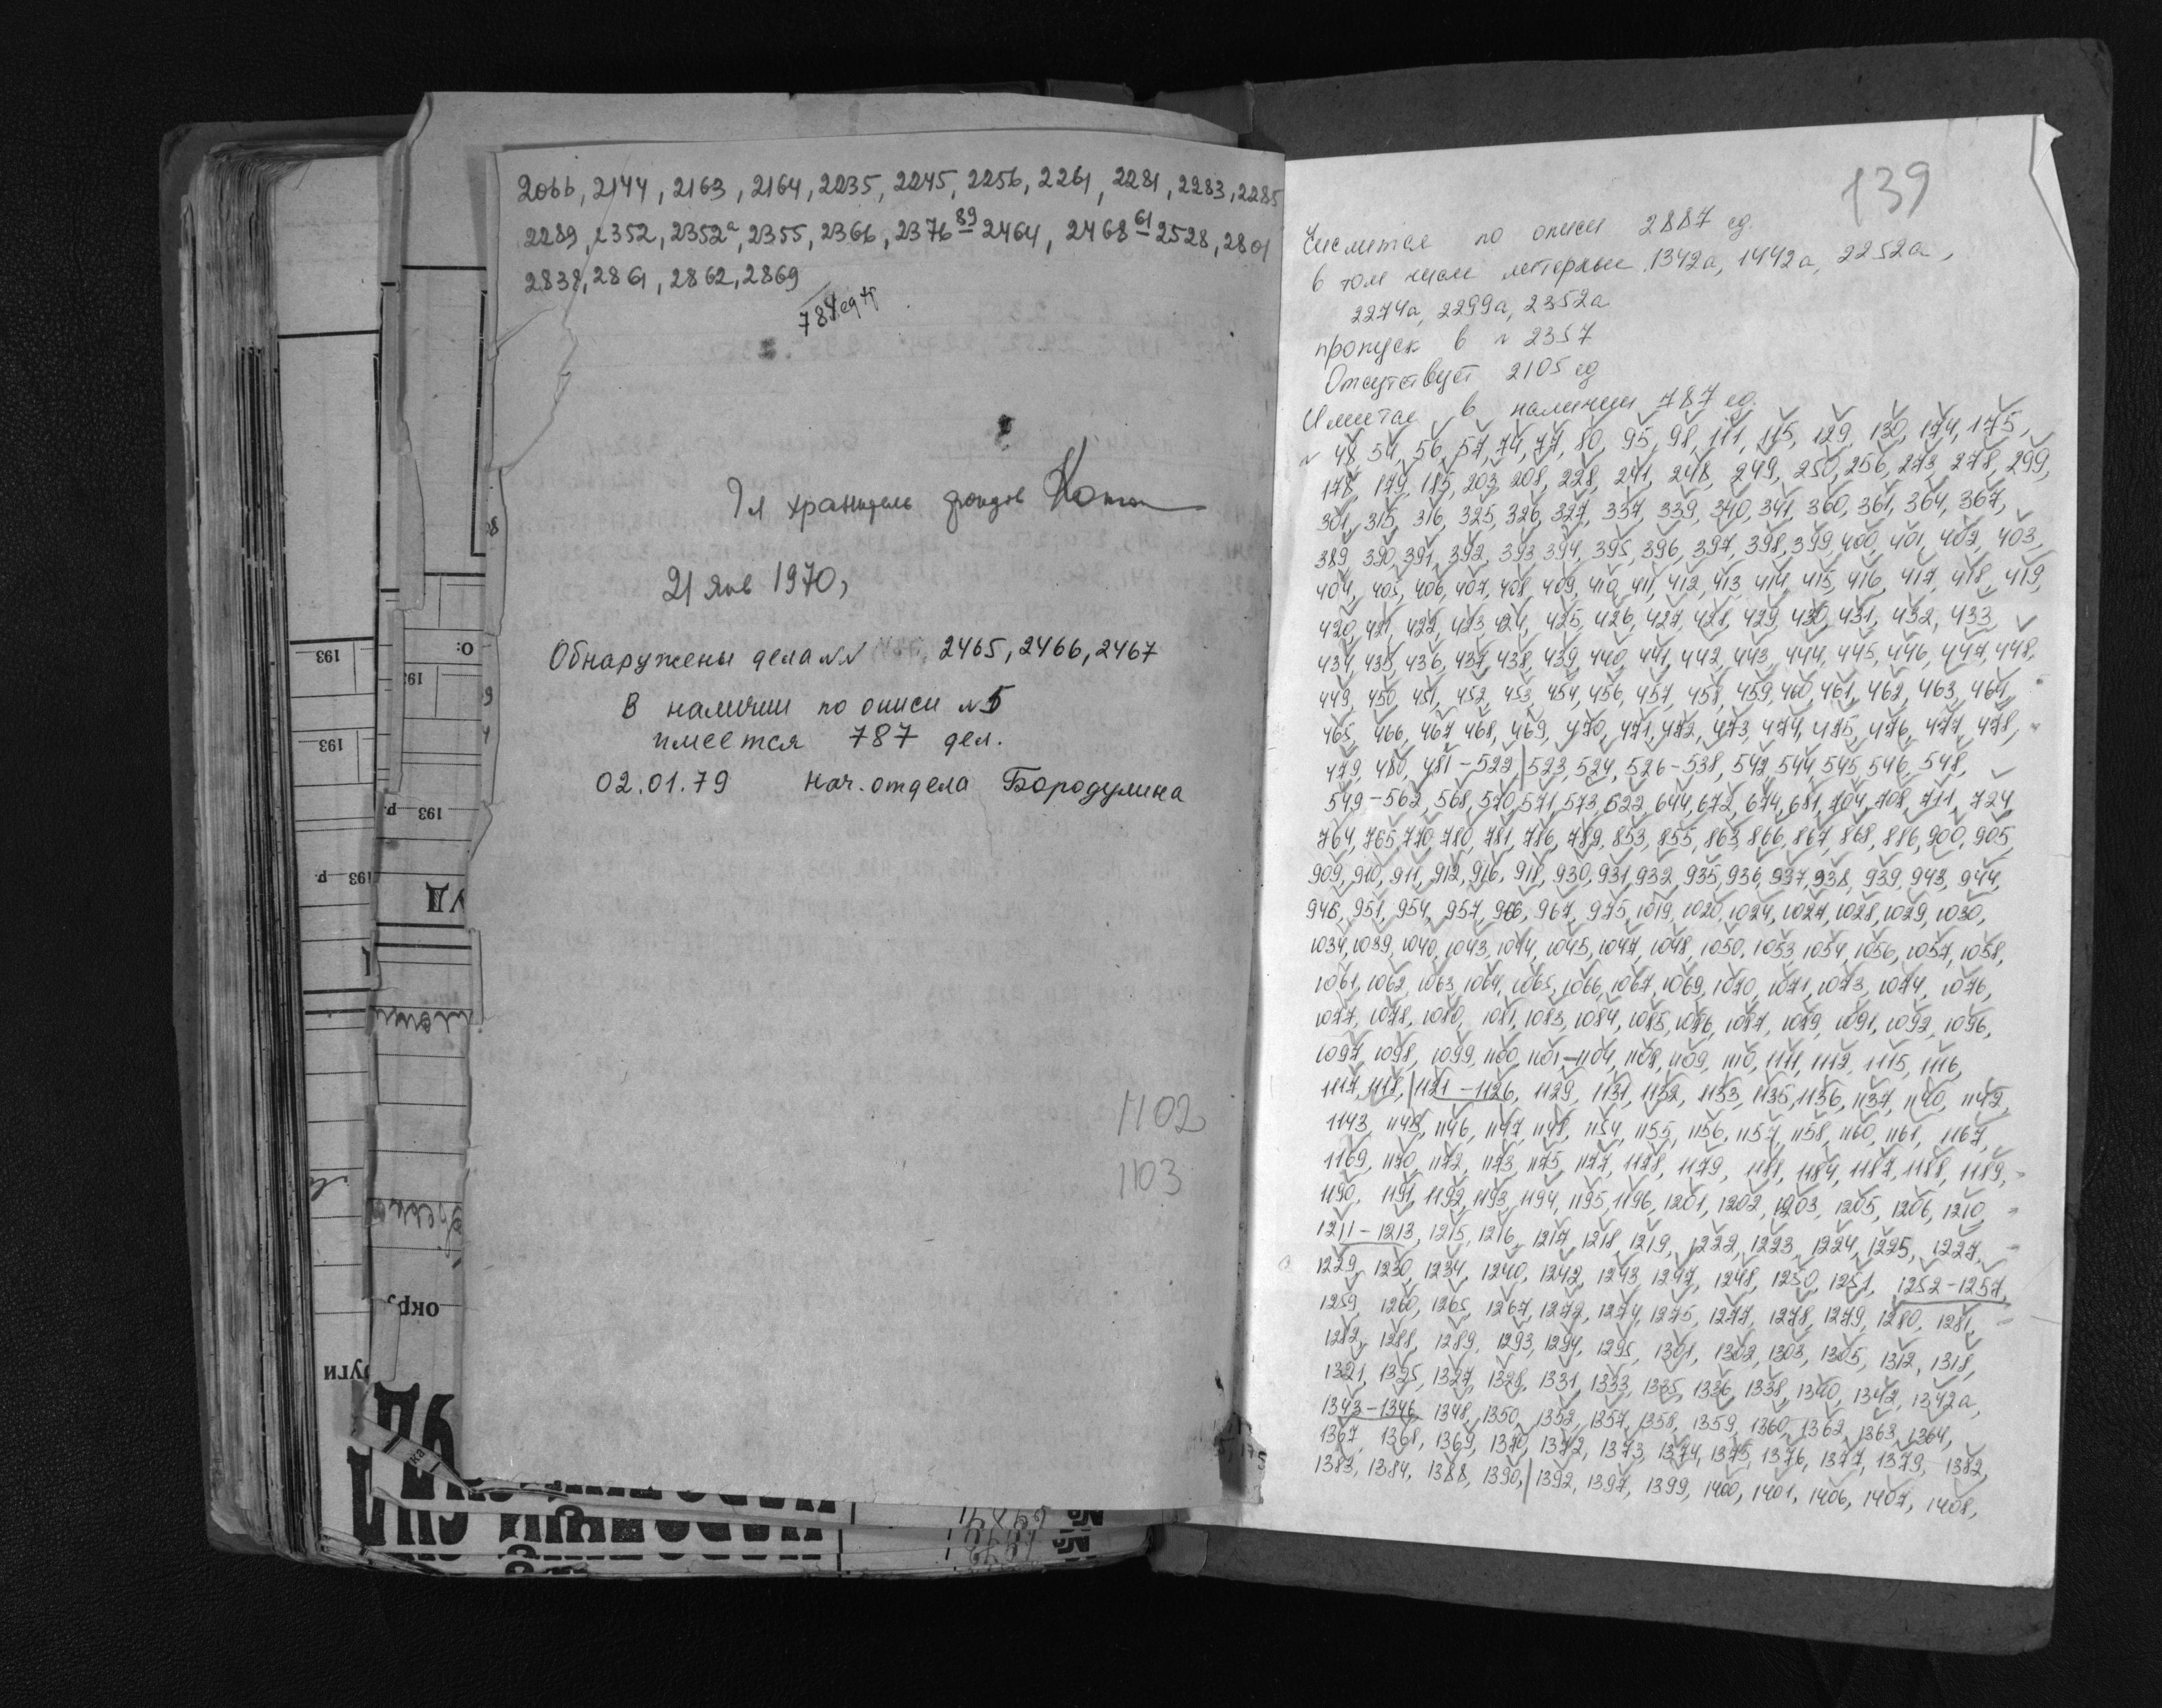 2066, 2144, 2163, 2164, 2235, 2245, 2256, 2261, 2281, 2283, 2285
2289, 2352, 2352а, 2355, 2366, 2376 89 – 2464, 2468 61 – 2528, 2801
2838, 2861, 2862, 2869
784 ед хр
Гл хранитель фондов
21 янв 1970,
Обнаружены дела NN 2465, 2466, 2467
В наличии по описи N5
имеется 787 дел.
02.01.79 нач. отдела Бородулина
1102
1103
139
Числится по описи 2887 ед.
в том числе литерные 1342а, 1442а, 2252а,
2274а, 2299а, 2352а
пропуск в N 2357
Отсутствует 2105 ед
Имеется в наличии 787 ед.
N 48, 54, 56, 57, 74, 77, 80, 95, 98, 111, 115, 129, 130, 174, 175,
178, 179, 185, 203, 208, 228, 241, 248, 249, 250, 256, 273, 278, 299,
301, 315, 316, 325, 326, 327, 337, 339, 340, 341, 360, 361, 364, 367,
389, 390, 391, 392, 393, 394, 395, 396, 397, 398, 399, 400, 401, 402, 403,
404, 405, 406, 407, 408, 409, 410, 411, 412, 413, 414, 415, 416, 417, 418, 419,
420, 421, 422, 423, 424, 425, 426, 427, 428, 429, 430, 431, 432, 433,
434, 435, 436, 437, 438, 439, 440, 441, 442, 443, 444, 445, 446, 447, 448,
449, 450, 451, 452, 453, 454, 456, 457, 458, 459, 460, 461, 462, 463, 464,
465, 466, 467, 468, 469, 470, 471, 472, 473, 474, 475, 476, 477, 478,
479, 480, 481–522, 523, 524, 526–538, 542, 544, 545, 546, 548,
549–562, 568, 570, 571, 573, 622, 644, 672, 674, 681, 704, 708, 711, 724,
764, 765, 770, 780, 781, 786, 789, 853, 855, 863, 866, 867, 868, 886, 900, 905,
909, 910, 911, 912, 916, 918, 930, 931, 932, 935, 936, 937, 938, 939, 943, 944,
946, 951, 954, 957, 966, 967, 975, 1019, 1020, 1024, 1027, 1028, 1029, 1030,
1034, 1039, 1040, 1043, 1044, 1045, 1047, 1048, 1050, 1053, 1054, 1056, 1057, 1058,
1061, 1062, 1063, 1064, 1065, 1066, 1067, 1069, 1070, 1071, 1073, 1074, 1076,
1077, 1078, 1080, 1081, 1083, 1084, 1085, 1086, 1087, 1089, 1091, 1092, 1096,
1097, 1098, 1099, 1100, 1101–1104, 1108, 1109, 1110, 1111, 1112, 1115, 1116,
1117, 1118, 1121–1126, 1129, 1131, 1132, 1133, 1135, 1136, 1137, 1140, 1142,
1143, 1145, 1146, 1147, 1148, 1154, 1155, 1156, 1157, 1158, 1160, 1161, 1167,
1169, 1170, 1172, 1173, 1175, 1177, 1178, 1179, 1181, 1184, 1187, 1188, 1189,
1190, 1191, 1192, 1193, 1194, 1195, 1196, 1201, 1202, 1203, 1205, 1206, 1210,
1211–1213, 1215, 1216, 1217, 1218, 1219, 1222, 1223, 1224, 1225, 1227,
1229, 1230, 1234, 1240, 1242, 1243, 1247, 1248, 1250, 1251, 1252–1257,
1259, 1260, 1265, 1267, 1272, 1274, 1275, 1277, 1278, 1279, 1280, 1281,
1282, 1288, 1289, 1293, 1294, 1295, 1301, 1302, 1303, 1305, 1312, 1318,
1321, 1325, 1327, 1328, 1331, 1333, 1335, 1336, 1338, 1340, 1342, 1342а,
1343–1346, 1348, 1350, 1352, 1357, 1358, 1359, 1360, 1362, 1363, 1364,
1367, 1368, 1369, 1370, 1372, 1373, 1374, 1375, 1376, 1377, 1379, 1382,
1383, 1384, 1388, 1390, 1392, 1397, 1399, 1400, 1401, 1406, 1407, 1408,
193
193
193
193 р.
193 р.
УД
окр.
руги